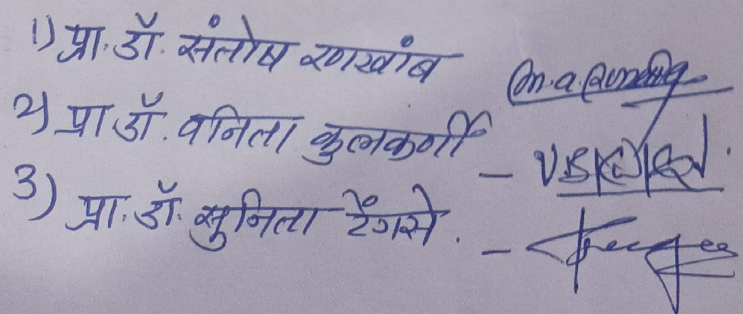 १) प्रा. डॉ. संतोष रणखांब
२) प्रा डॉ. वनिता कुलकर्णी -
3) प्रा. डॉ. सुनिता टेंगसे. -